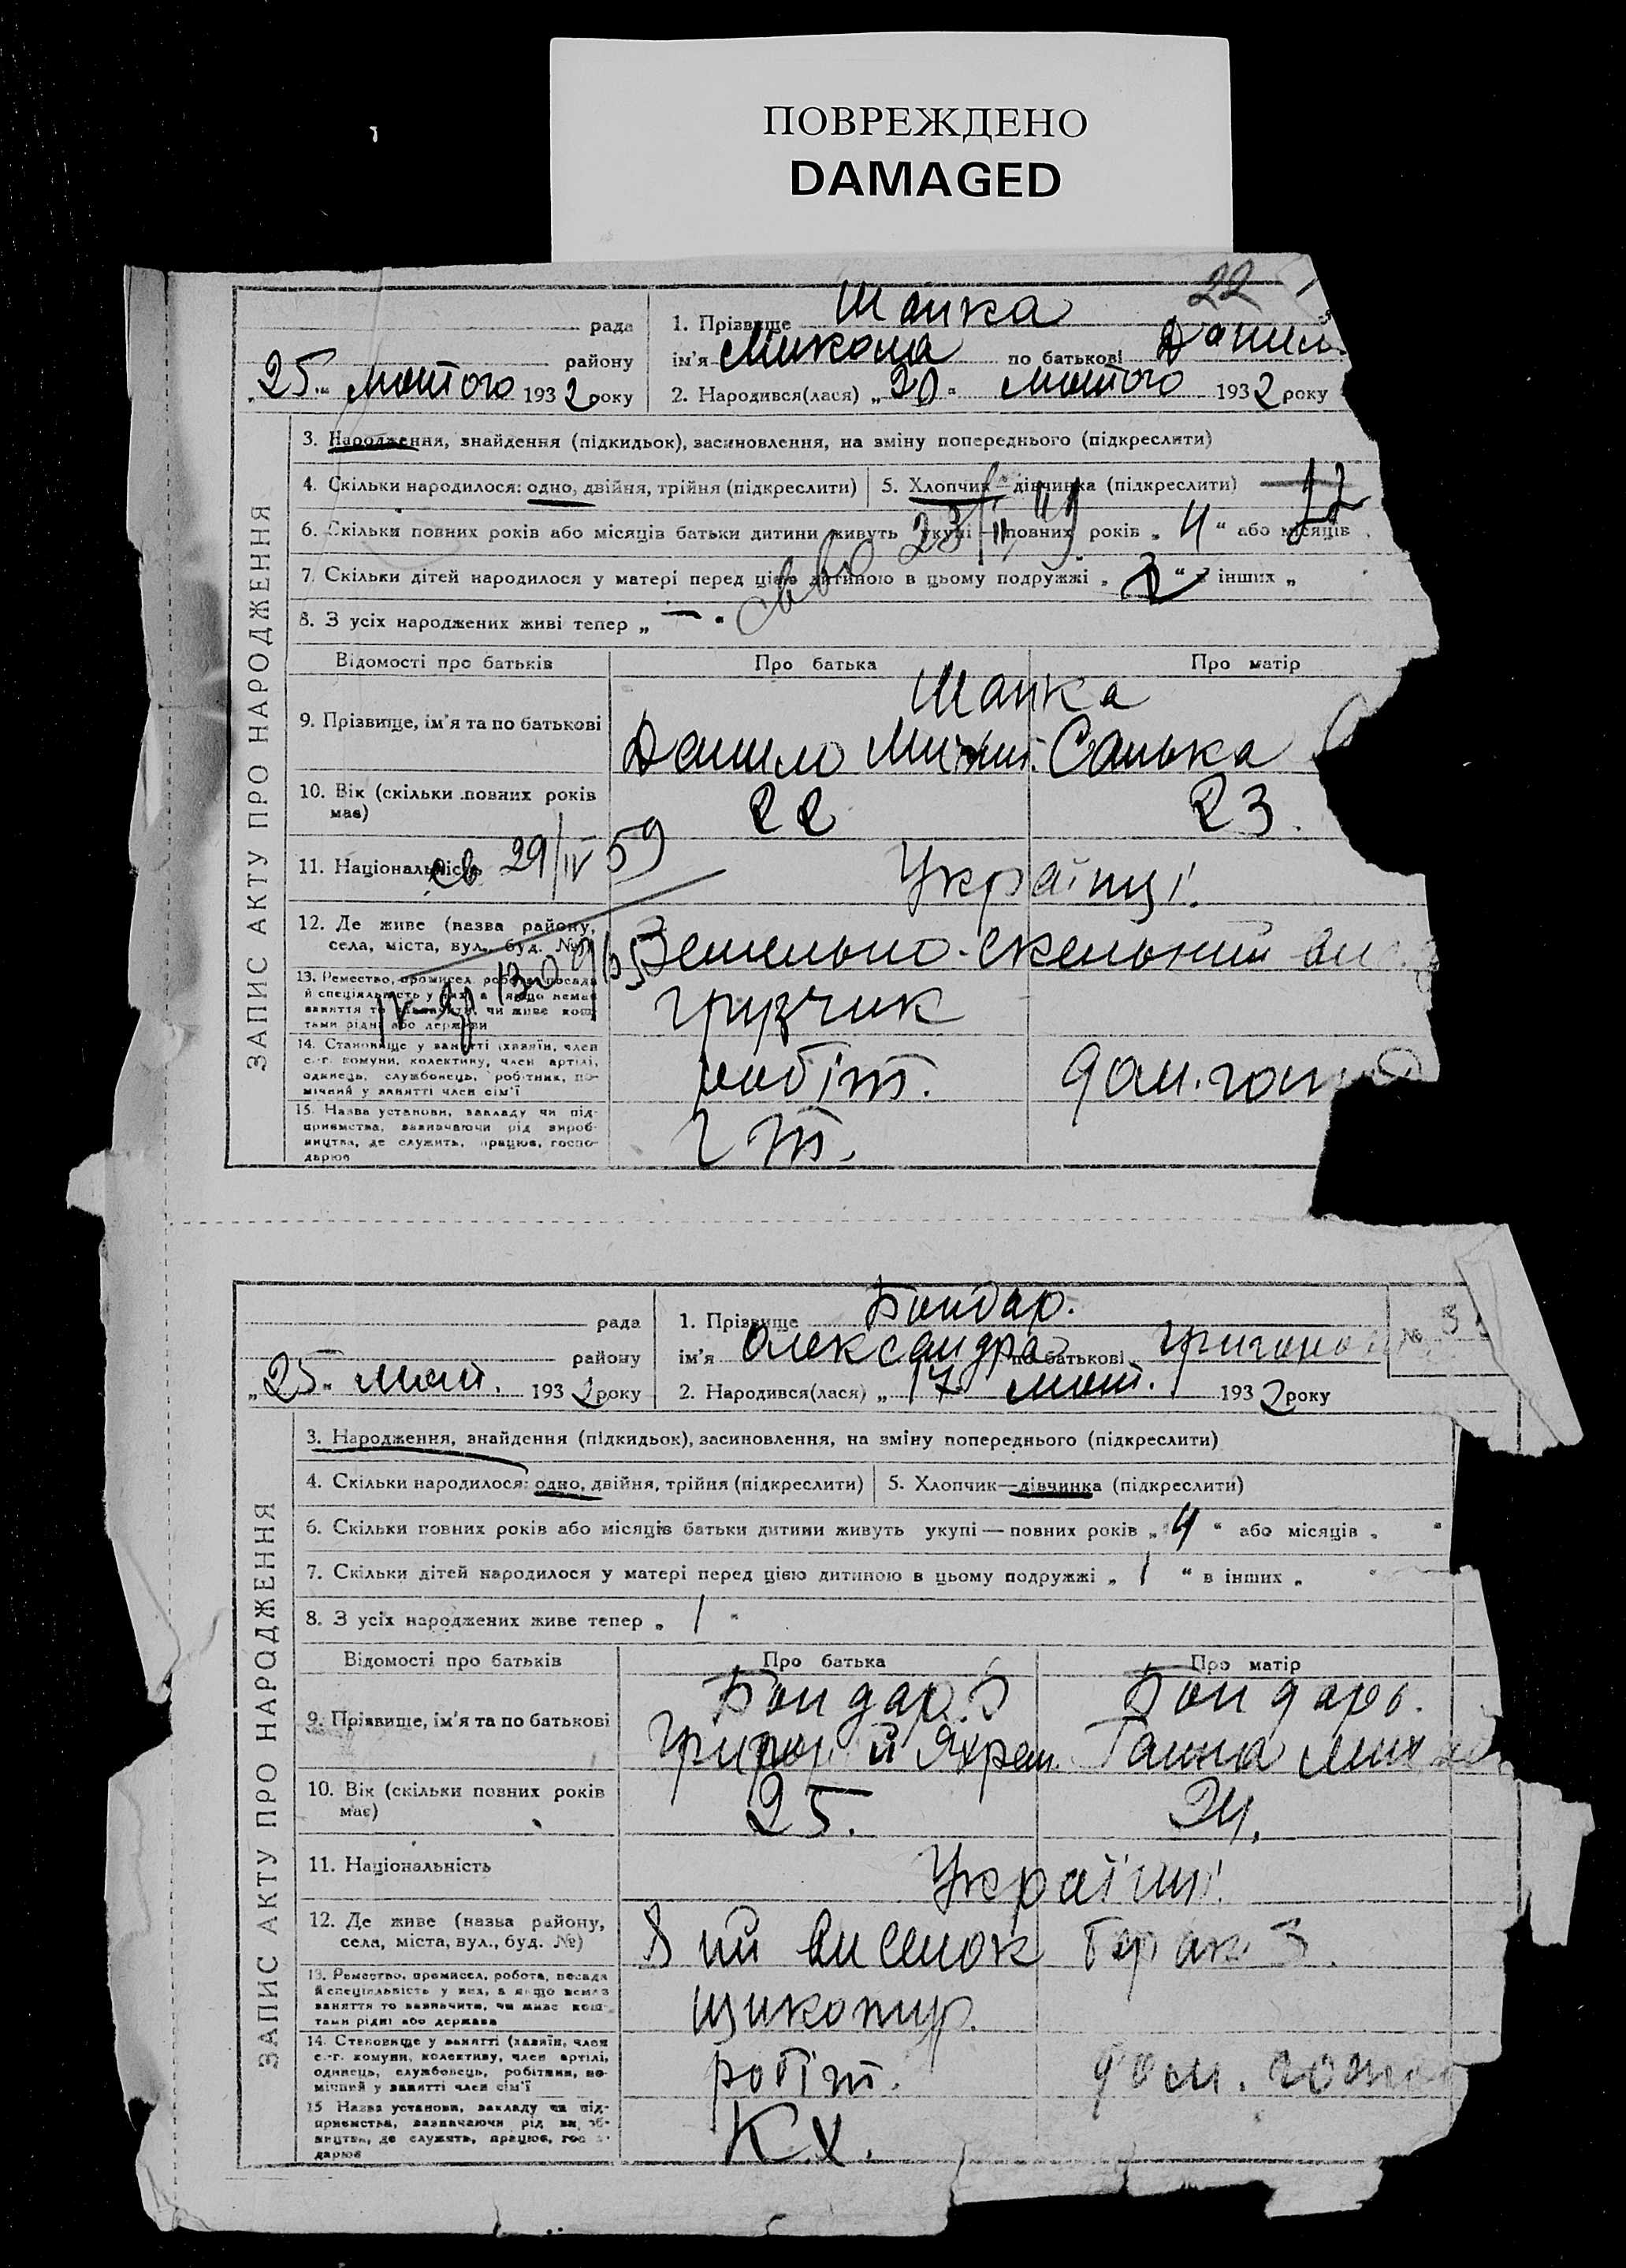 ПОВРЕЖДЕНО
DAMAGED
22
рада
району
„25“ лютого 1932 року
1. Прізвище Шапка
ім'я Микола по батькові Данил
2. Народився(лася) „20“ лютого 1932 року
ЗАПИС АКТУ ПРО НАРОДЖЕННЯ
3. Народження, знайдення (підкидьок), засиновлення, на зміну попереднього (підкреслити)
4. Скільки народилося: одно, двійня, трійня (підкреслити)
5. Хлопчик—дівчинка (підкреслити) 12
6. Скільки повних років або місяців батьки дитини живуть укупі — повних років „4“ або місяців
7. Скільки дітей народилося у матері перед цією дитиною в цьому подружжі „ “ в інших „
8. З усіх народжених живі тепер „—“
Відомості про батьків
Про батька
Про матір
9. Прізвище, ім'я та по батькові
Шапка
Данило Михай. Санька
10. Вік (скільки повних років має)
22
23.
11. Національність
св 29/IV 59
Українці.
12. Де живе (назва району, села, міста, вул., буд. №)
Земельно-скельний
13. Ремество, промисел, робота, посада
й спеціяльність у них, а якщо немає
заняття то зазначити, чи живе кош-
тами рідні або держави
грузчик
14. Становище у занятті (хазяїн, член
с.-г. комуни, колективу, член артілі,
одинець, службовець, робітник, по-
мічний у занятті член сім'ї
робіт.
дом. гос
15. Назва установи, закладу чи під-
приємства, зазначаючи рід вироб-
ництва, де служить, працює, госпо-
дарює
рада
району
„25“ лют. 1932 року
1. Прізвище Бондар.
ім'я Олександра по батькові Григоров
№ 3
2. Народився(лася) „17 лют. 1932 року
ЗАПИС АКТУ ПРО НАРОДЖЕННЯ
3. Народження, знайдення (підкидьок), засиновлення, на зміну попереднього (підкреслити)
4. Скільки народилося: одно, двійня, трійня (підкреслити)
5. Хлопчик—дівчинка (підкреслити)
6. Скільки повних років або місяців батьки дитини живуть укупі — повних років „4“ або місяців „ “
7. Скільки дітей народилося у матері перед цією дитиною в цьому подружжі „1“ в інших „ “
8. З усіх народжених живе тепер „1“
Відомості про батьків
Про батька
Про матір
9. Прізвище, ім'я та по батькові
Бондар
Бондарь.
Григорій Яхрем. Ганна Мих
10. Вік (скільки повних років має)
25.
24.
11. Національність
Українці
12. Де живе (назва району, села, міста, вул., буд. №)
8 ий виселок барак 3.
13. Ремество, промисел, робота, посада
й спеціяльність у них, а якщо немає
заняття то зазначити, чи живе кош-
тами рідні або держава
14. Становище у занятті (хазяїн, член
с.-г. комуни, колективу, член артілі,
одинець, службовець, робітник, по-
мічний у занятті член сім'ї
робіт.
дом.
15 Назва установи, закладу чи під-
приємства, зазначаючи рід вироб-
ництва, де служить, працює, госпо-
дарює
К.Х.